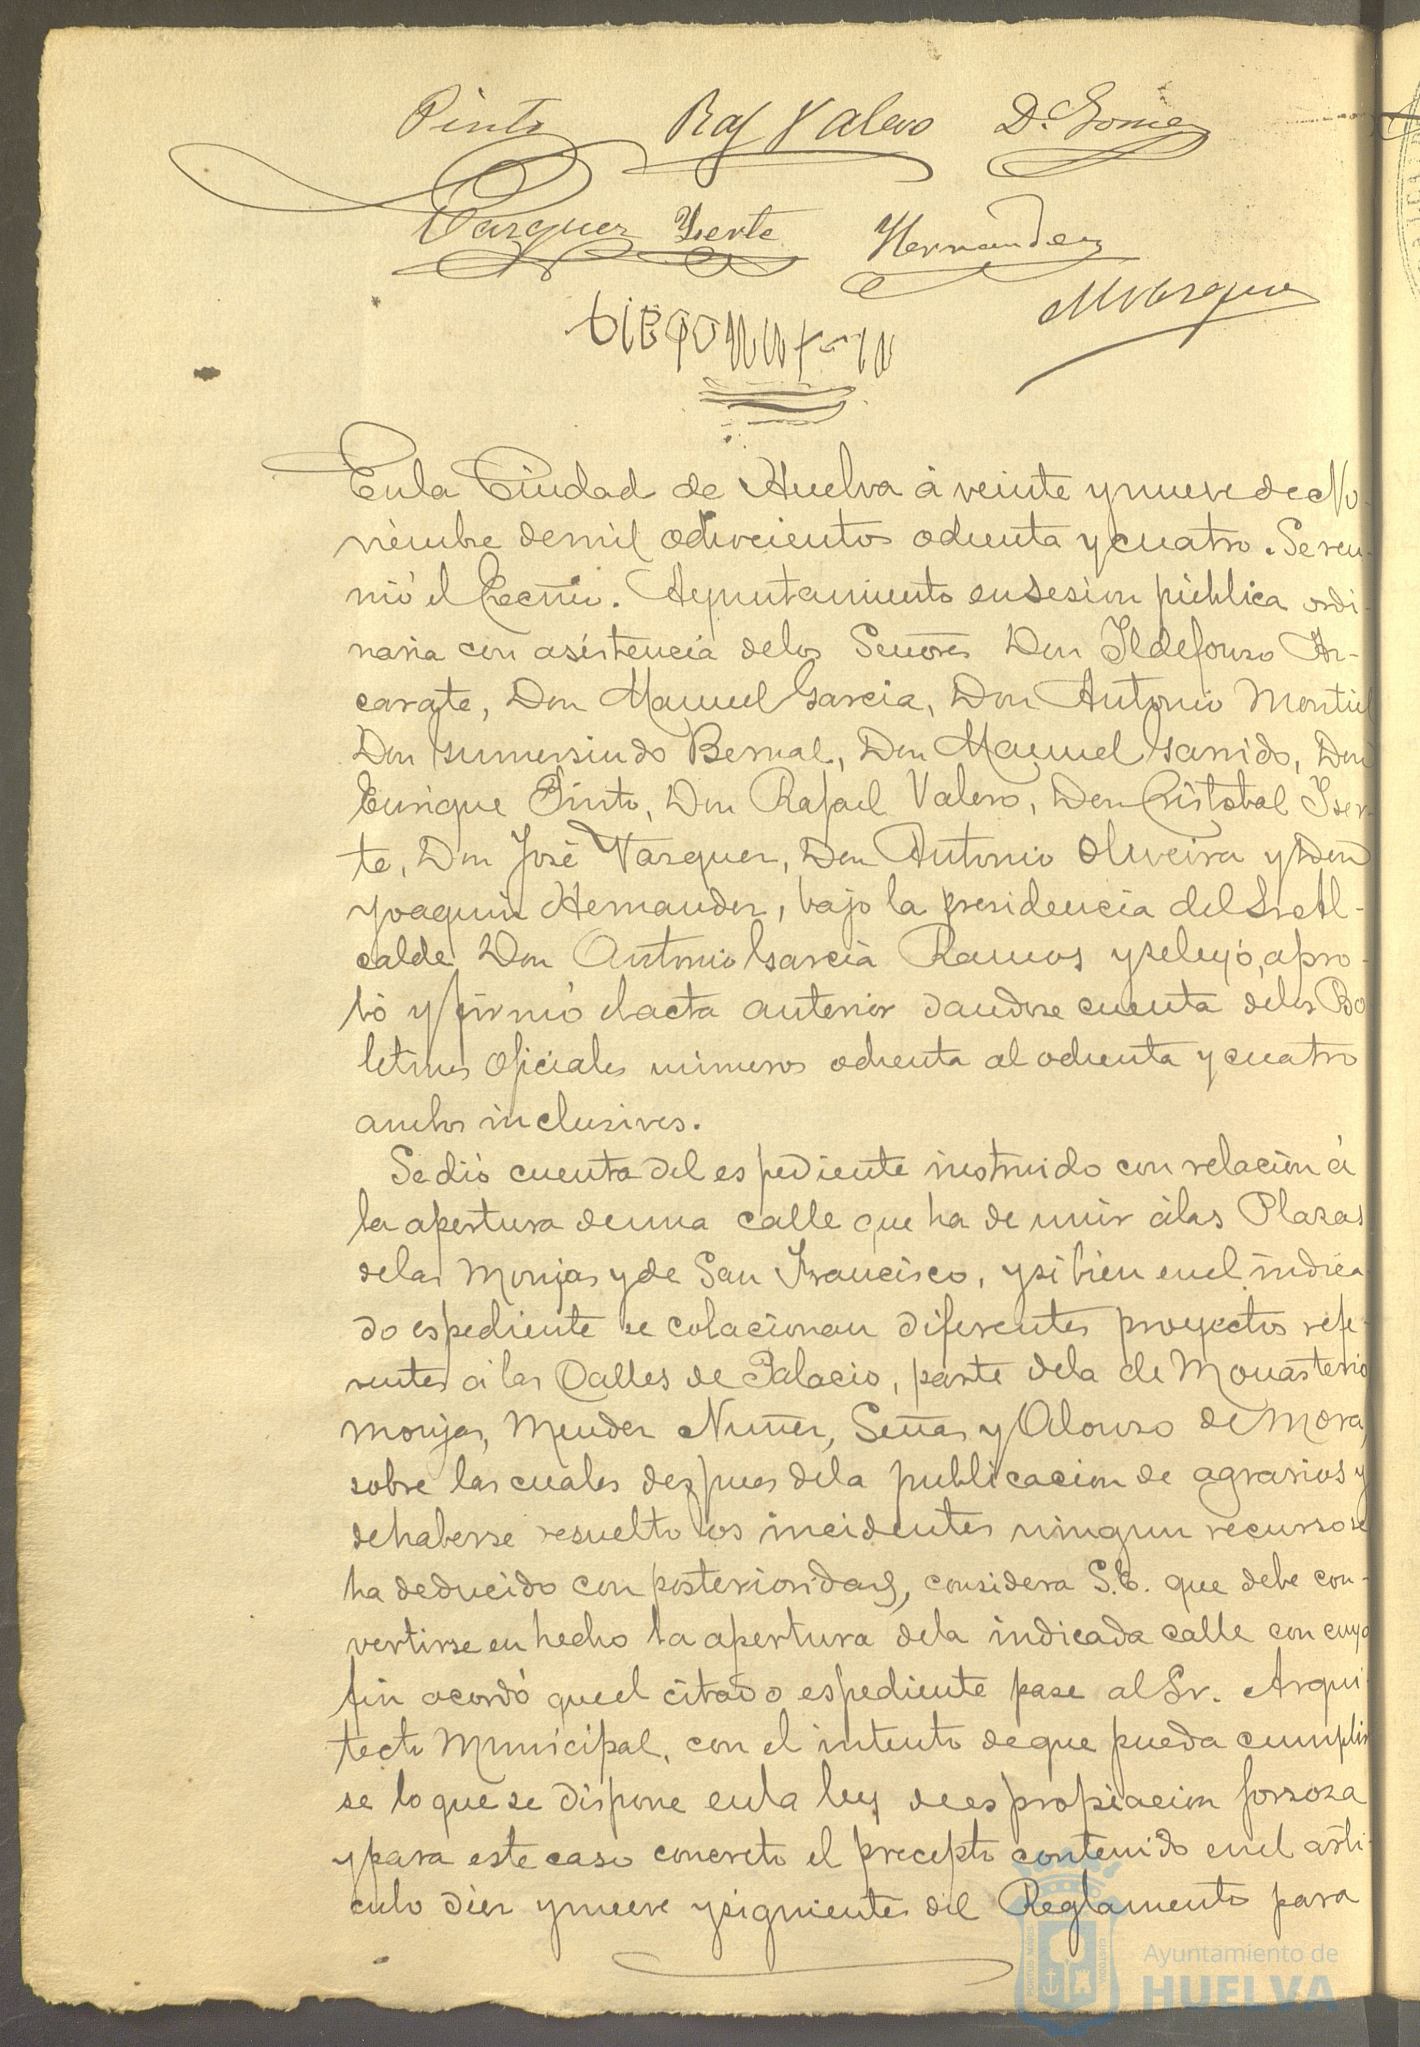 Pinto Raf Valero D. Gomez
Vazquez Yserte Hernandez
M Vazquez
En la Ciudad de Huelva á veinte y nueve de No-
viembre de mil ochocientos ochenta y cuatro. Se reu-
nió el Ecmo. Ayuntamiento en sesion pública ordi-
naria con asistencia de los Señores Don Ildefonso Az-
carate, Don Manuel Garcia, Don Antonio Montiel
Don Gumersindo Bernal, Don Manuel Garrido, Don
Enrique Pinto, Don Rafael Valero, Don Cristobal Yser-
te, Don José Vazquez, Don Antonio Oliveira y Don
Joaquin Hernandez, bajo la presidencia del Sr. Al-
calde Don Antonio Garcia Ramos y se leyó, apro-
bó y firmó el acta anterior dandose cuenta de los Bo
letines Oficiales números ochenta al ochenta y cuatro
ambos inclusives.
Se dió cuenta del espediente instruido con relacion á
la apertura de una calle que ha de unir á las Plazas
de las Monjas y de San Francisco, y si bien en el indica
do espediente se colacionan diferentes proyectos refe-
rentes á las Calles de Palacio, parte de la de Monasterio
Monjas, Mendez Nuñez, Señas y Alonso de Mora,
sobre las cuales despues de la publicacion de agravios y
de haberse resuelto los incidentes ningun recurso se
ha deducido con posterioridad, considera S.E. que debe con-
vertirse en hecho la apertura de la indicada calle con cuyo
fin acordó que el citado espediente pase al Sr. Arqui-
tecto Municipal, con el intento de que pueda cumplir
se lo que se dispone en la ley de espropiacion forzoza
y para este caso concreto el precepto contenido en el arti-
culo diez y nueve y siguientes del Reglamento para
Ayuntamiento de
HUELVA